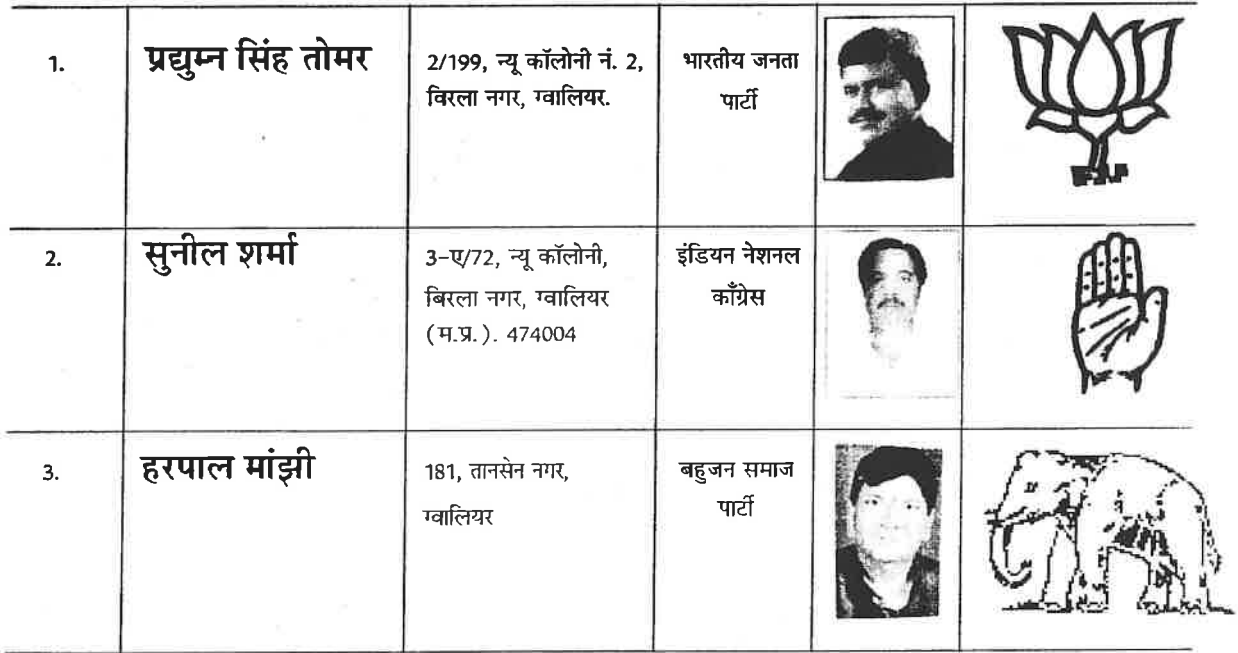 1.
प्रद्युम्न सिंह तोमर
2/199, न्यू कॉलोनी नं. 2,
विरला नगर, ग्वालियर.
भारतीय जनता
पार्टी
2.
सुनील शर्मा
3-ए/72, न्यू कॉलोनी,
बिरला नगर, ग्वालियर
(म.प्र.). 474004
इंडियन नेशनल
काँग्रेस
3.
हरपाल मांझी
181, तानसेन नगर,
ग्वालियर
बहुजन समाज
पार्टी